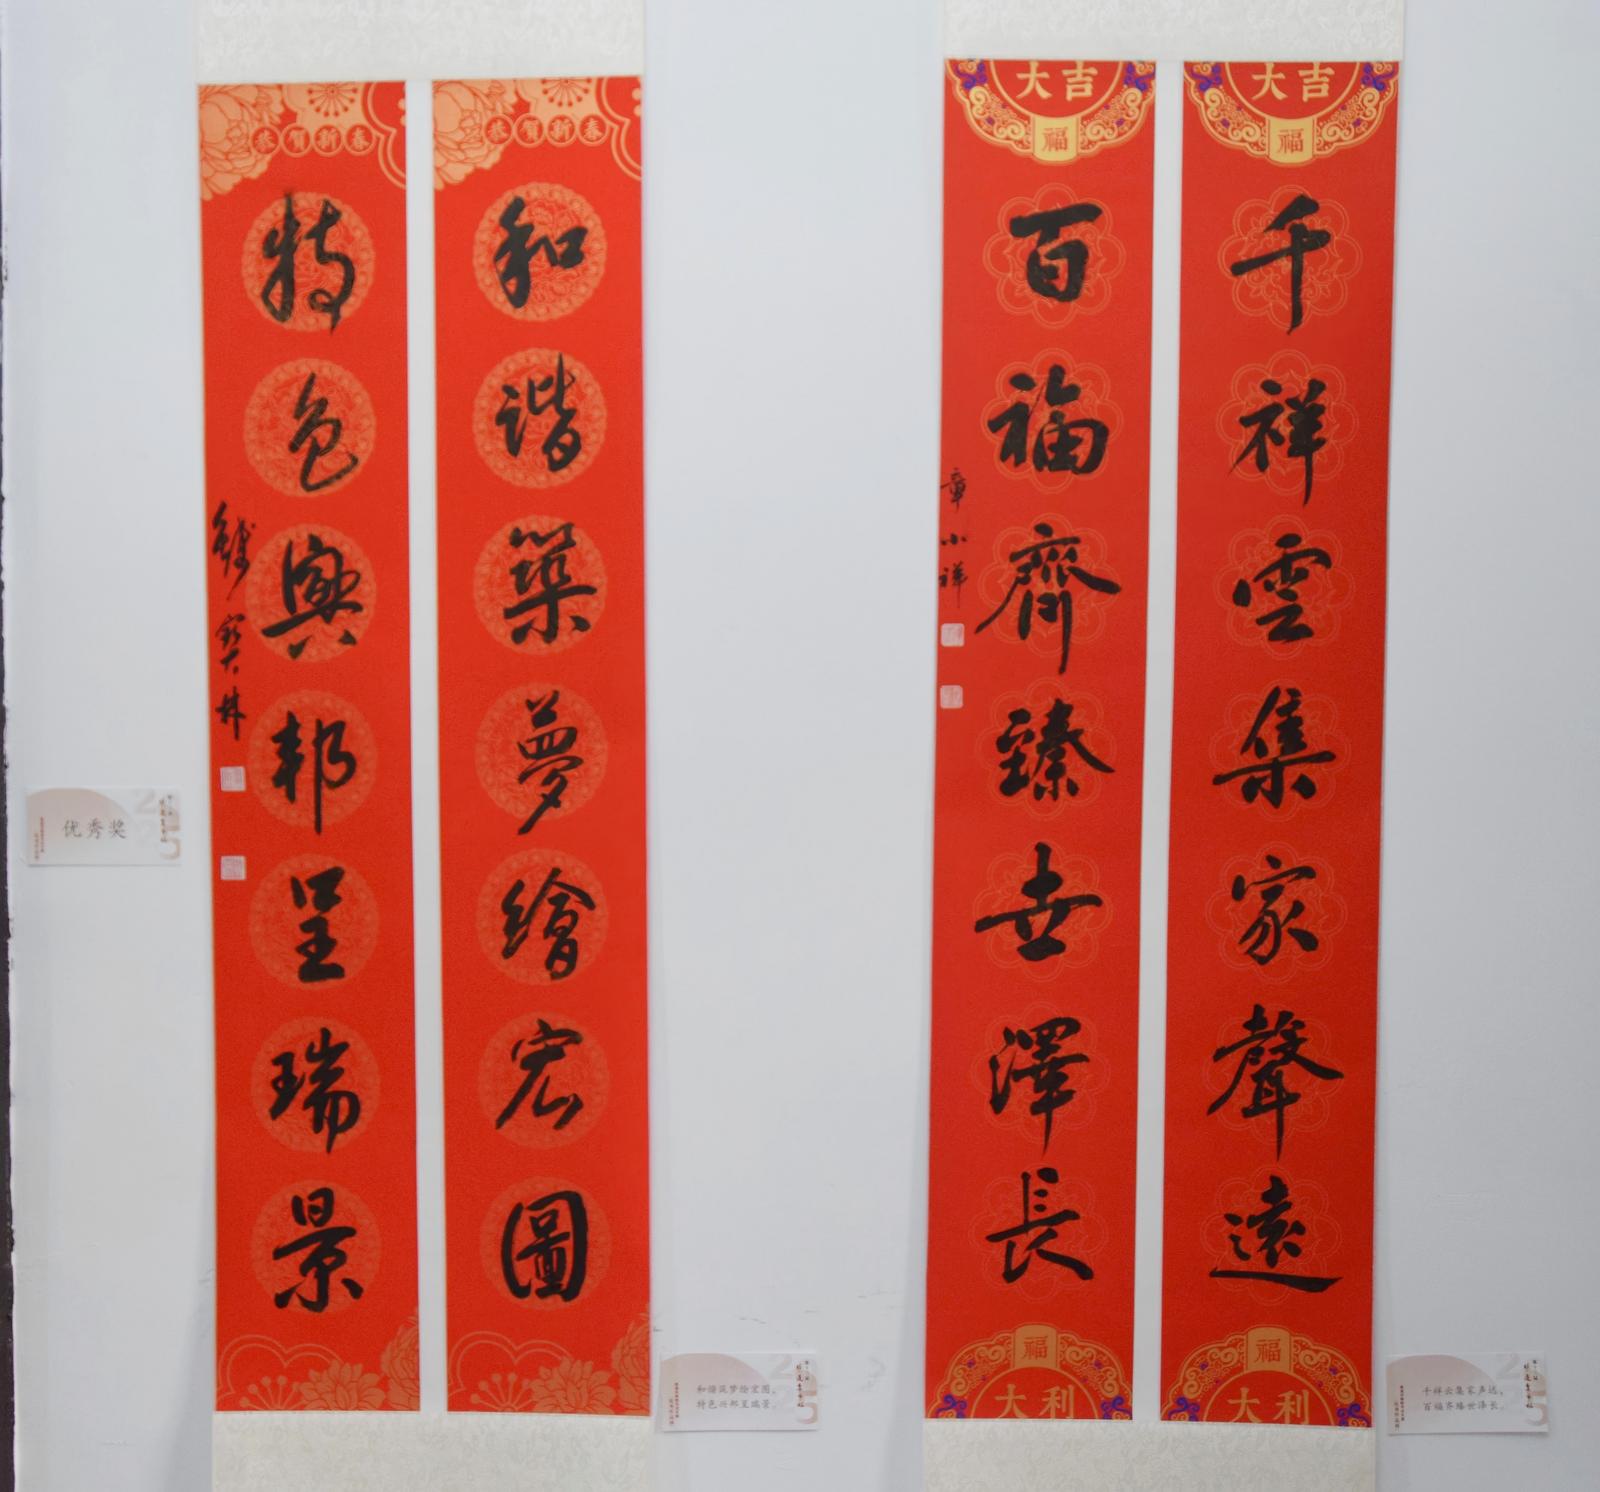 恭賀新春
和谐築夢繪宏圖
恭賀新春
特色興邦呈瑞景
錢寶林
大吉
福
千祥雲集家聲遠
福
大利
大吉
福
百福齊臻世澤長
章小祥
福
大利
优秀奖
和谐筑梦绘宏图，
特色兴邦呈瑞景。
千祥云集家声远，
百福齐臻世泽长。